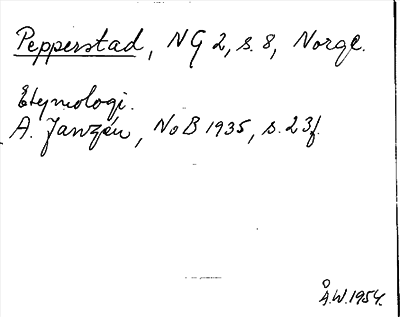 Pepperstad, NG 2, s. 8, Norge.
Etymologi.
A. Janzén, NoB 1935, s. 23f.
Å.W. 1954.